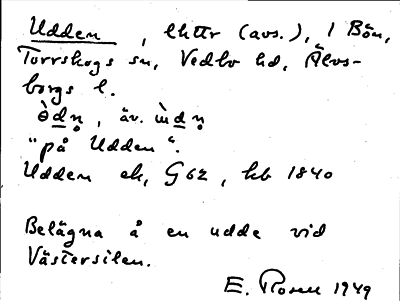 Udden, lhttr (avs.), 1 Bön,
Torrskogs sn, Vedbo hd, Älvs-
borgs l.
òdn̥, äv. ùdn̥
"på Udden".
Udden ek, G62, kb 1840
Belägna å en udde vid
Västersilen.
E. Rosen 1949